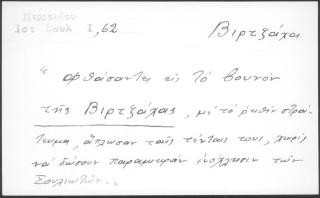 Περραιβου
Ιστ Σουλ Ι, 62
Βιρτζάχα
" φθάσαντες εἰς τό βουνόν
τῆς Βιρτζάχας, μέ τό ρηθέν στρά-
τευμα, ἅπλωσαν ταῖς τένταις τους, χωρίς
νά δώσουν παραμικράν ἐνόχλησιν τῶν
Σουλιωτῶν "